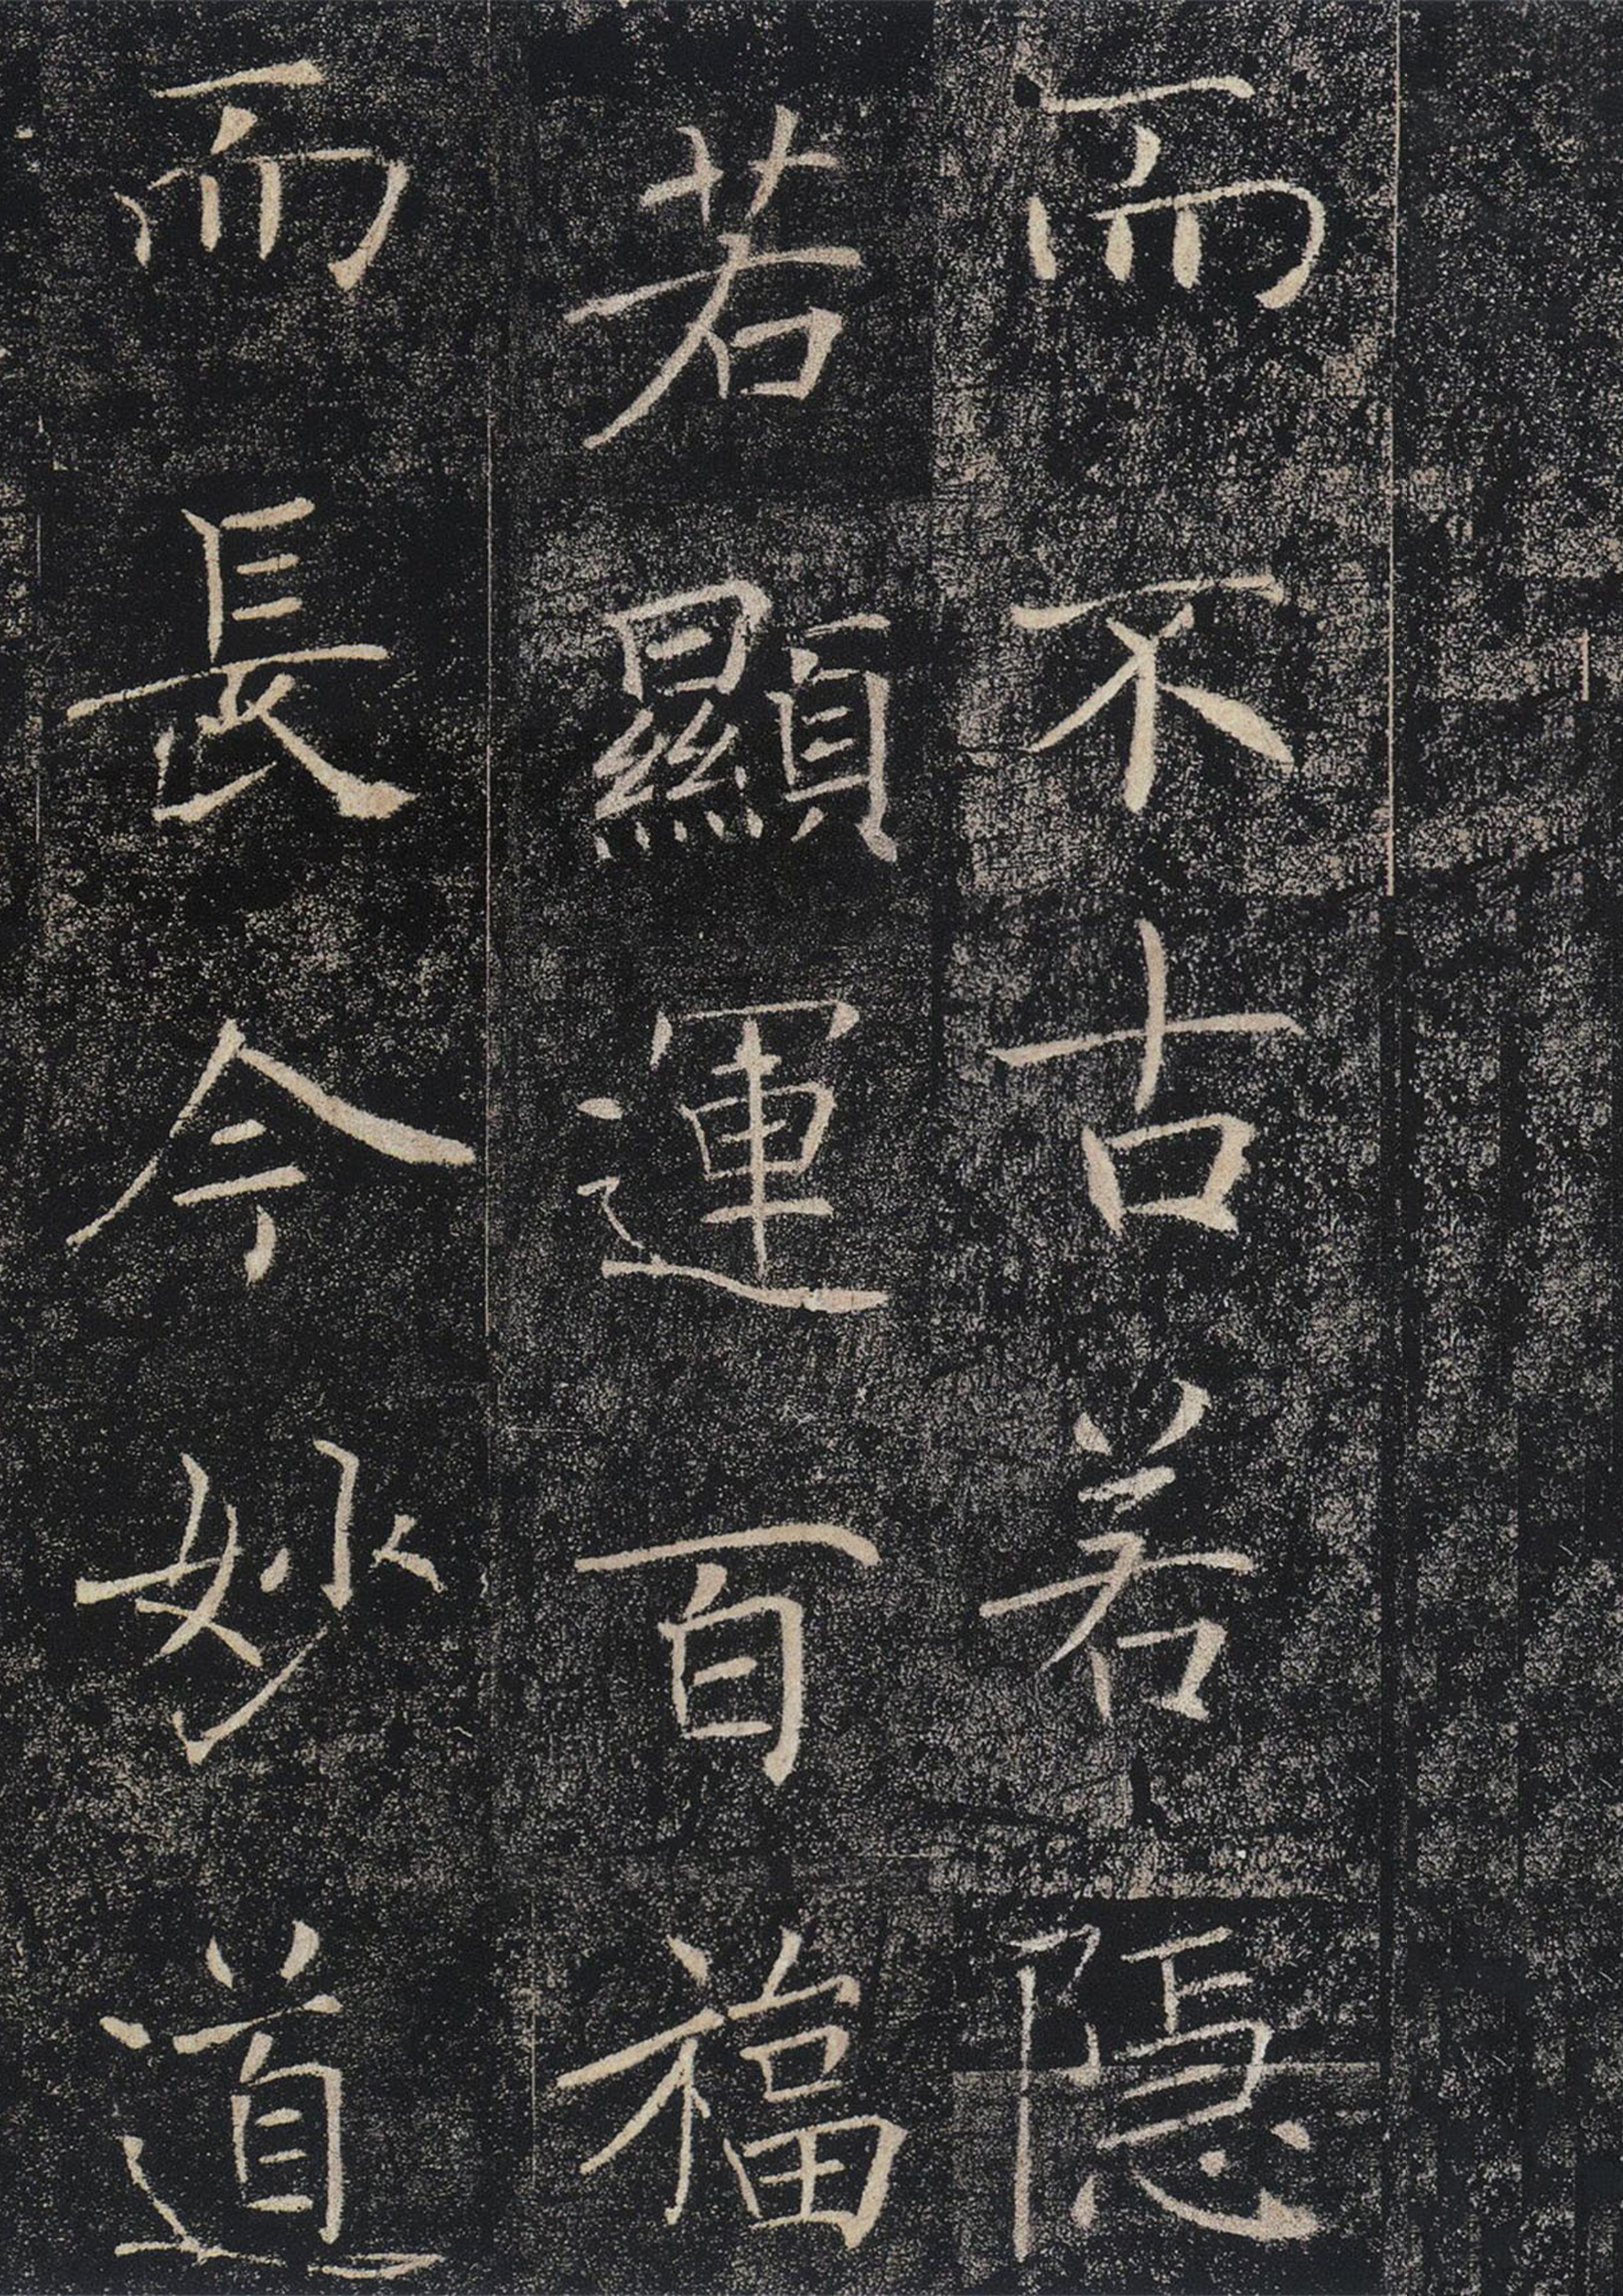 而不古若隱
若顯運百福
而長今妙道